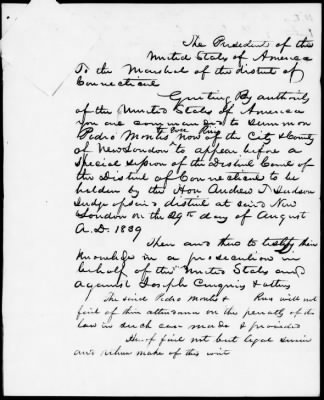 The President of the
United States of America
To the Marshal of the district of
Connecticut
Greeting By authority
of the United States of America
you are commanded to summon
Pedro Montes Jose Ruiz now of the City & County
of New London to appear before a
Special Session of the District Court of
the District of Connecticut to be
holden by the Hon Andrew T Judson
Judge of said district at said New
London on the 29th day of August
A.D. 1839
Then and there to testify their
knowledge in a prosecution in
behalf of the United States and
against Joseph Cinquis & others
The said Pedro Montes & Ruis will not
fail of their attendance on the penalty of the
law in such case made & provided
Hereof fail not but legal service
and return make of this writ